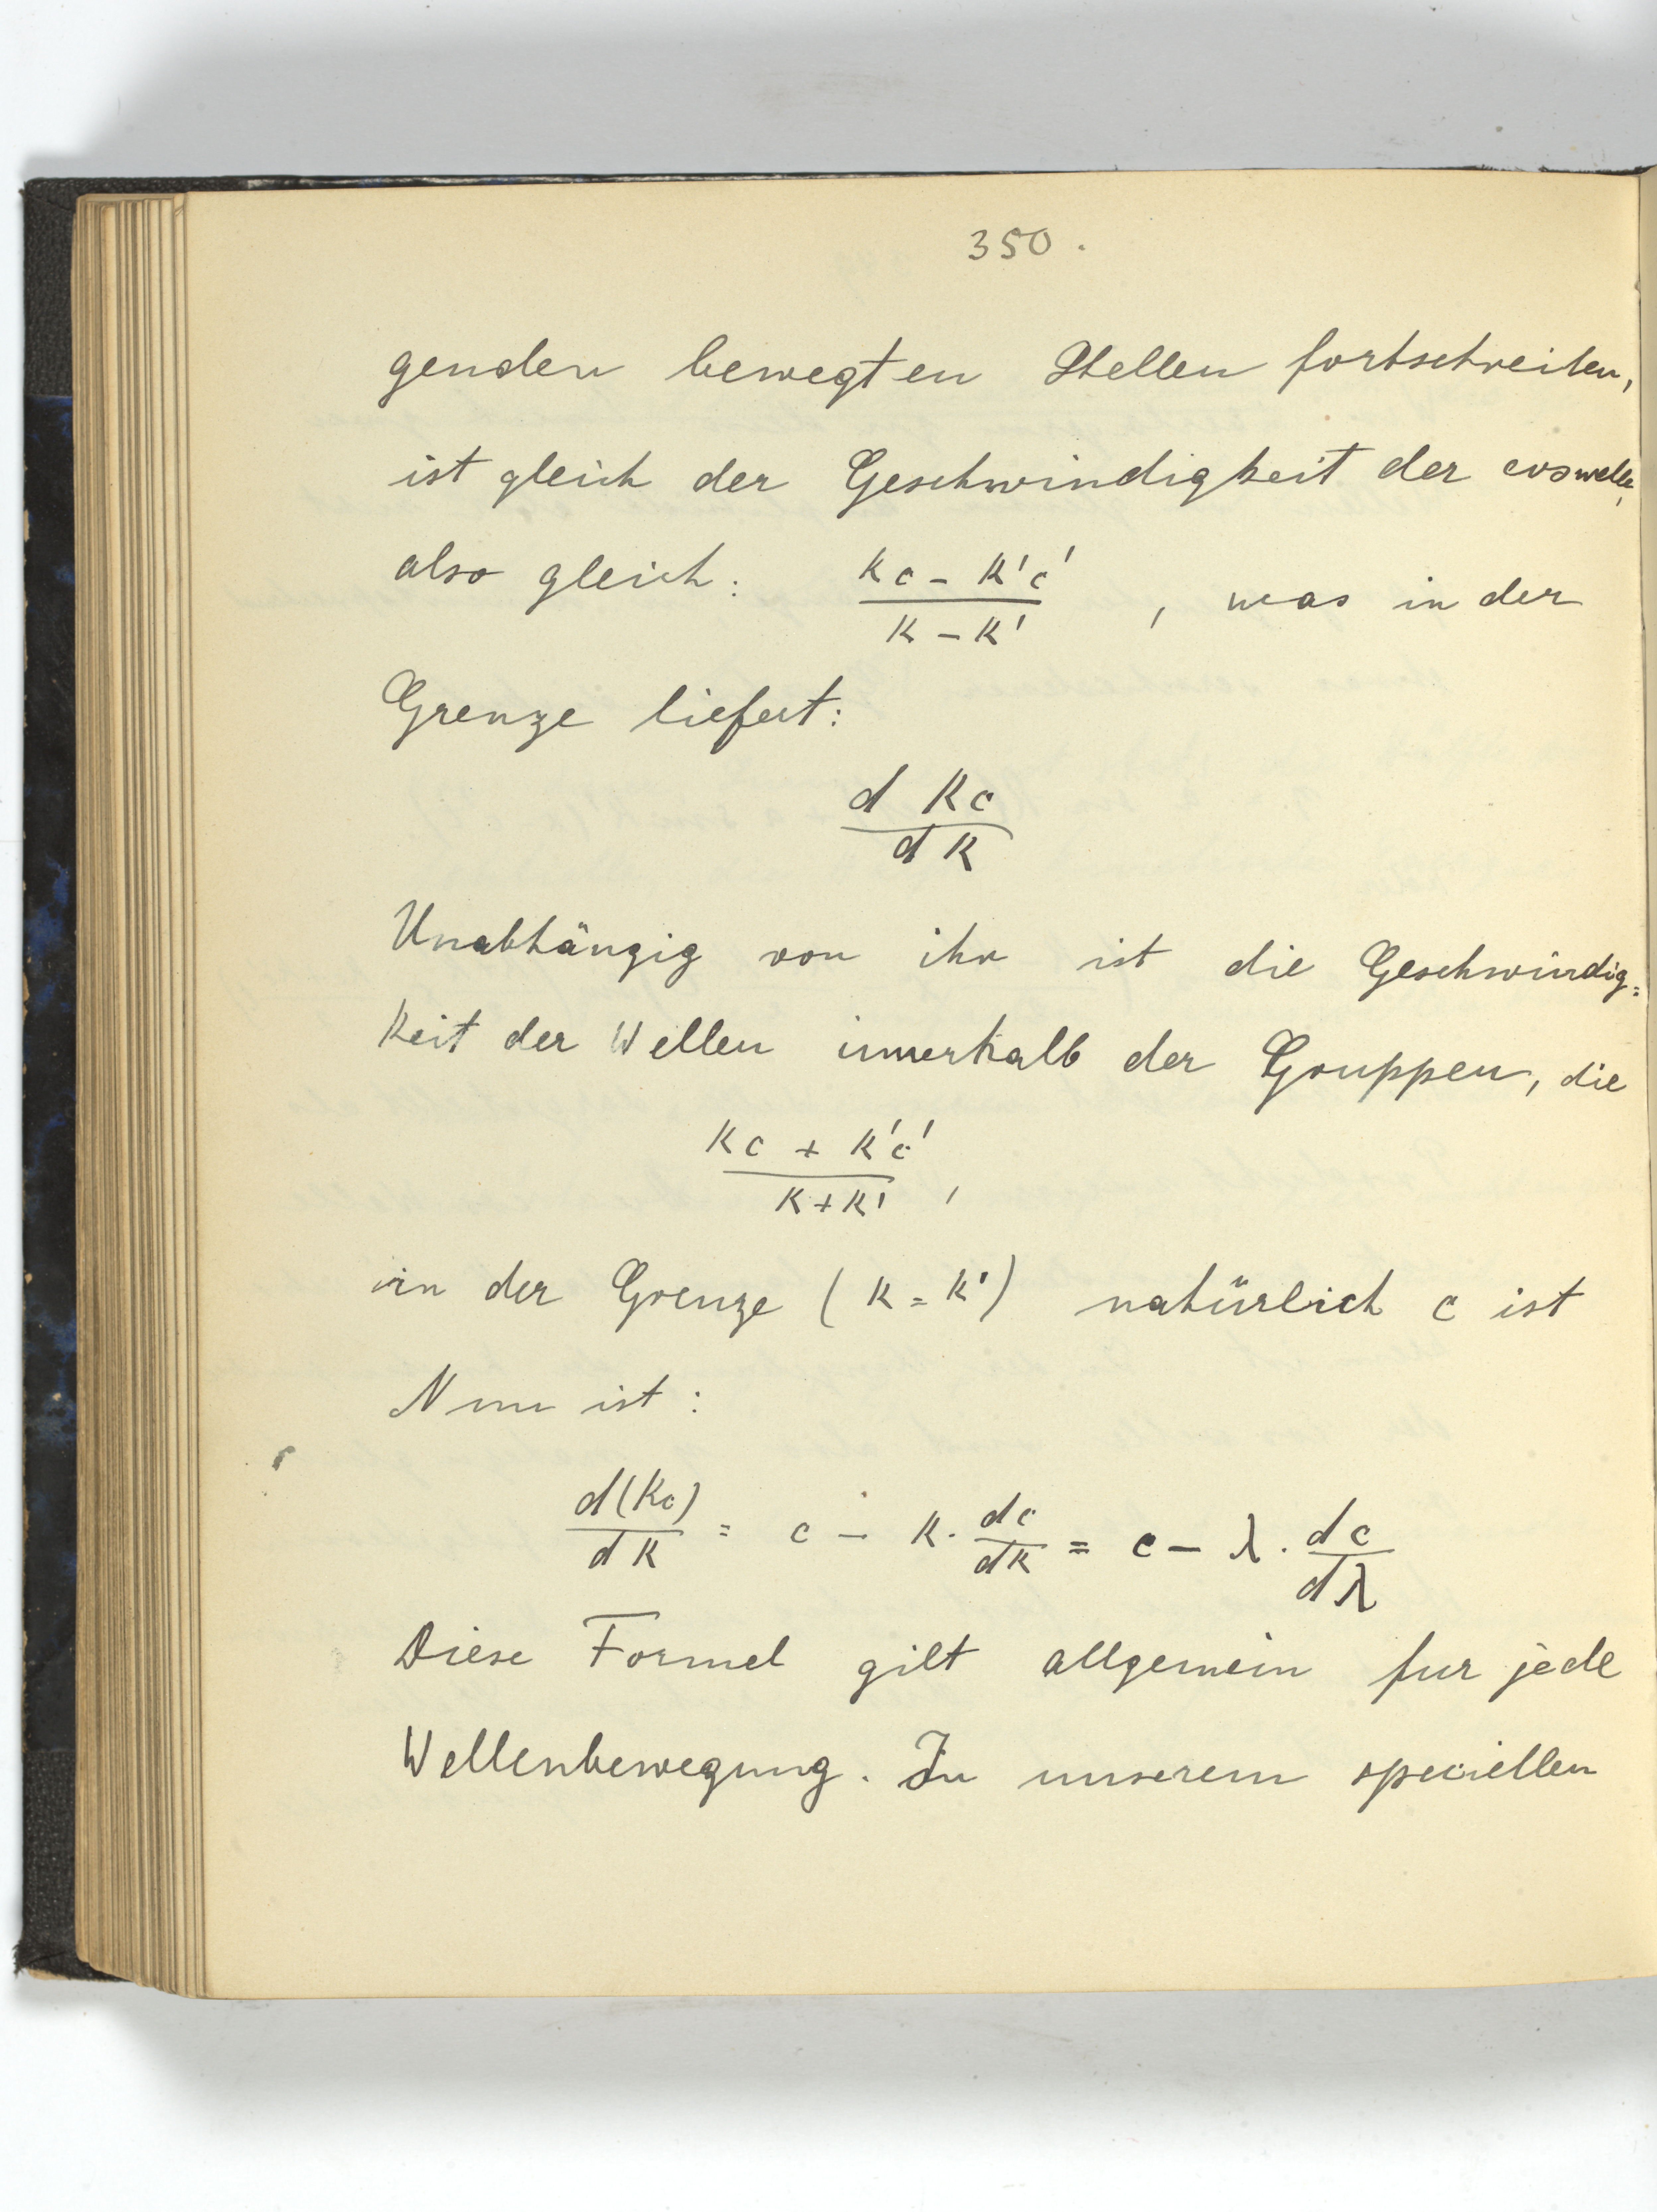 350.
genden bewegten Stellen fortschreiten,
ist gleich der Geschwindigkeit der coswelle,
also gleich: \frac{kc - k'c'}{k - k'}, was in der
Grenze liefert:
\frac{d kc}{dk}
Unabhängig von ihr ist die Geschwindig=
keit der Wellen innerhalb der Gruppen, die
\frac{kc + k'c'}{k + k'},
in der Grenze (k = k') natürlich c ist
Nun ist:
\frac{d(kc)}{dk} = c - k \cdot \frac{dc}{dk} = c - λ \cdot \frac{dc}{dλ}
Diese Formel gilt allgemein fur jede
Wellenbewegung. In unserem speciellen